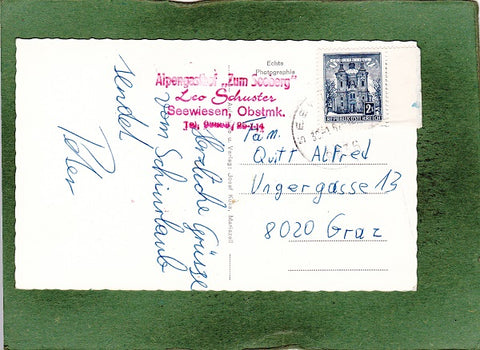 Alpengasthof „Zum Seeberg"
Leo Schuster
Seewiesen, Obstmk.
Herzliche Grüsse
vom Schiurlaub
sendet
Peter
Echte
Photographie
REPUBLIK ÖSTERREICH
Fam.
Quitt Alfred
Ungergasse 13
8020 Graz
Verlag Josef Kuss, Mariazell